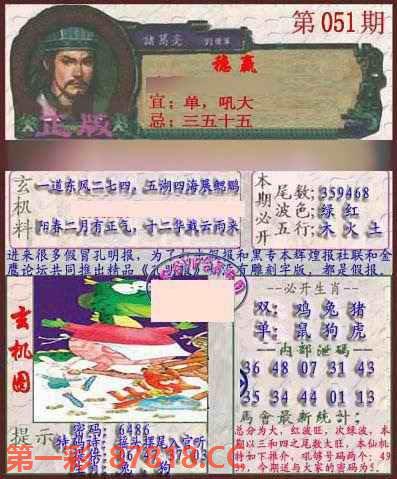 第051期
諸葛亮
稳赢
宜：单，吼大
忌：三五十五
正版
玄机料
一道东风二七四，五湖四海展鲲鹏
阳春二月有正气，寸二华戴云雨来
本期必开
尾数;359468
波色;绿 红
五行;木 火 土
进来很多假冒孔明报，为了
报和黑专本辉煌报社联和金
鹰论坛共同推出精品
有雕刻字版，都是假报。
玄机图
--必开生肖--
双: 鸡 兔 猪
单: 鼠 狗 虎
--内部泄码--
36 48 07 31 43
13 46 20 12 37
35 27 44 01 51
马會最新统计:
总分为大，红波旺，次绿波，本
期以三和四之尾数大旺，本仙机
诗如下推介，吼够号码两个: 49
09，今期道与大家的密码为5.
提示
密码: 6486
特码诗: 摇头摆尾入宫听
第一彩: 87818.CC